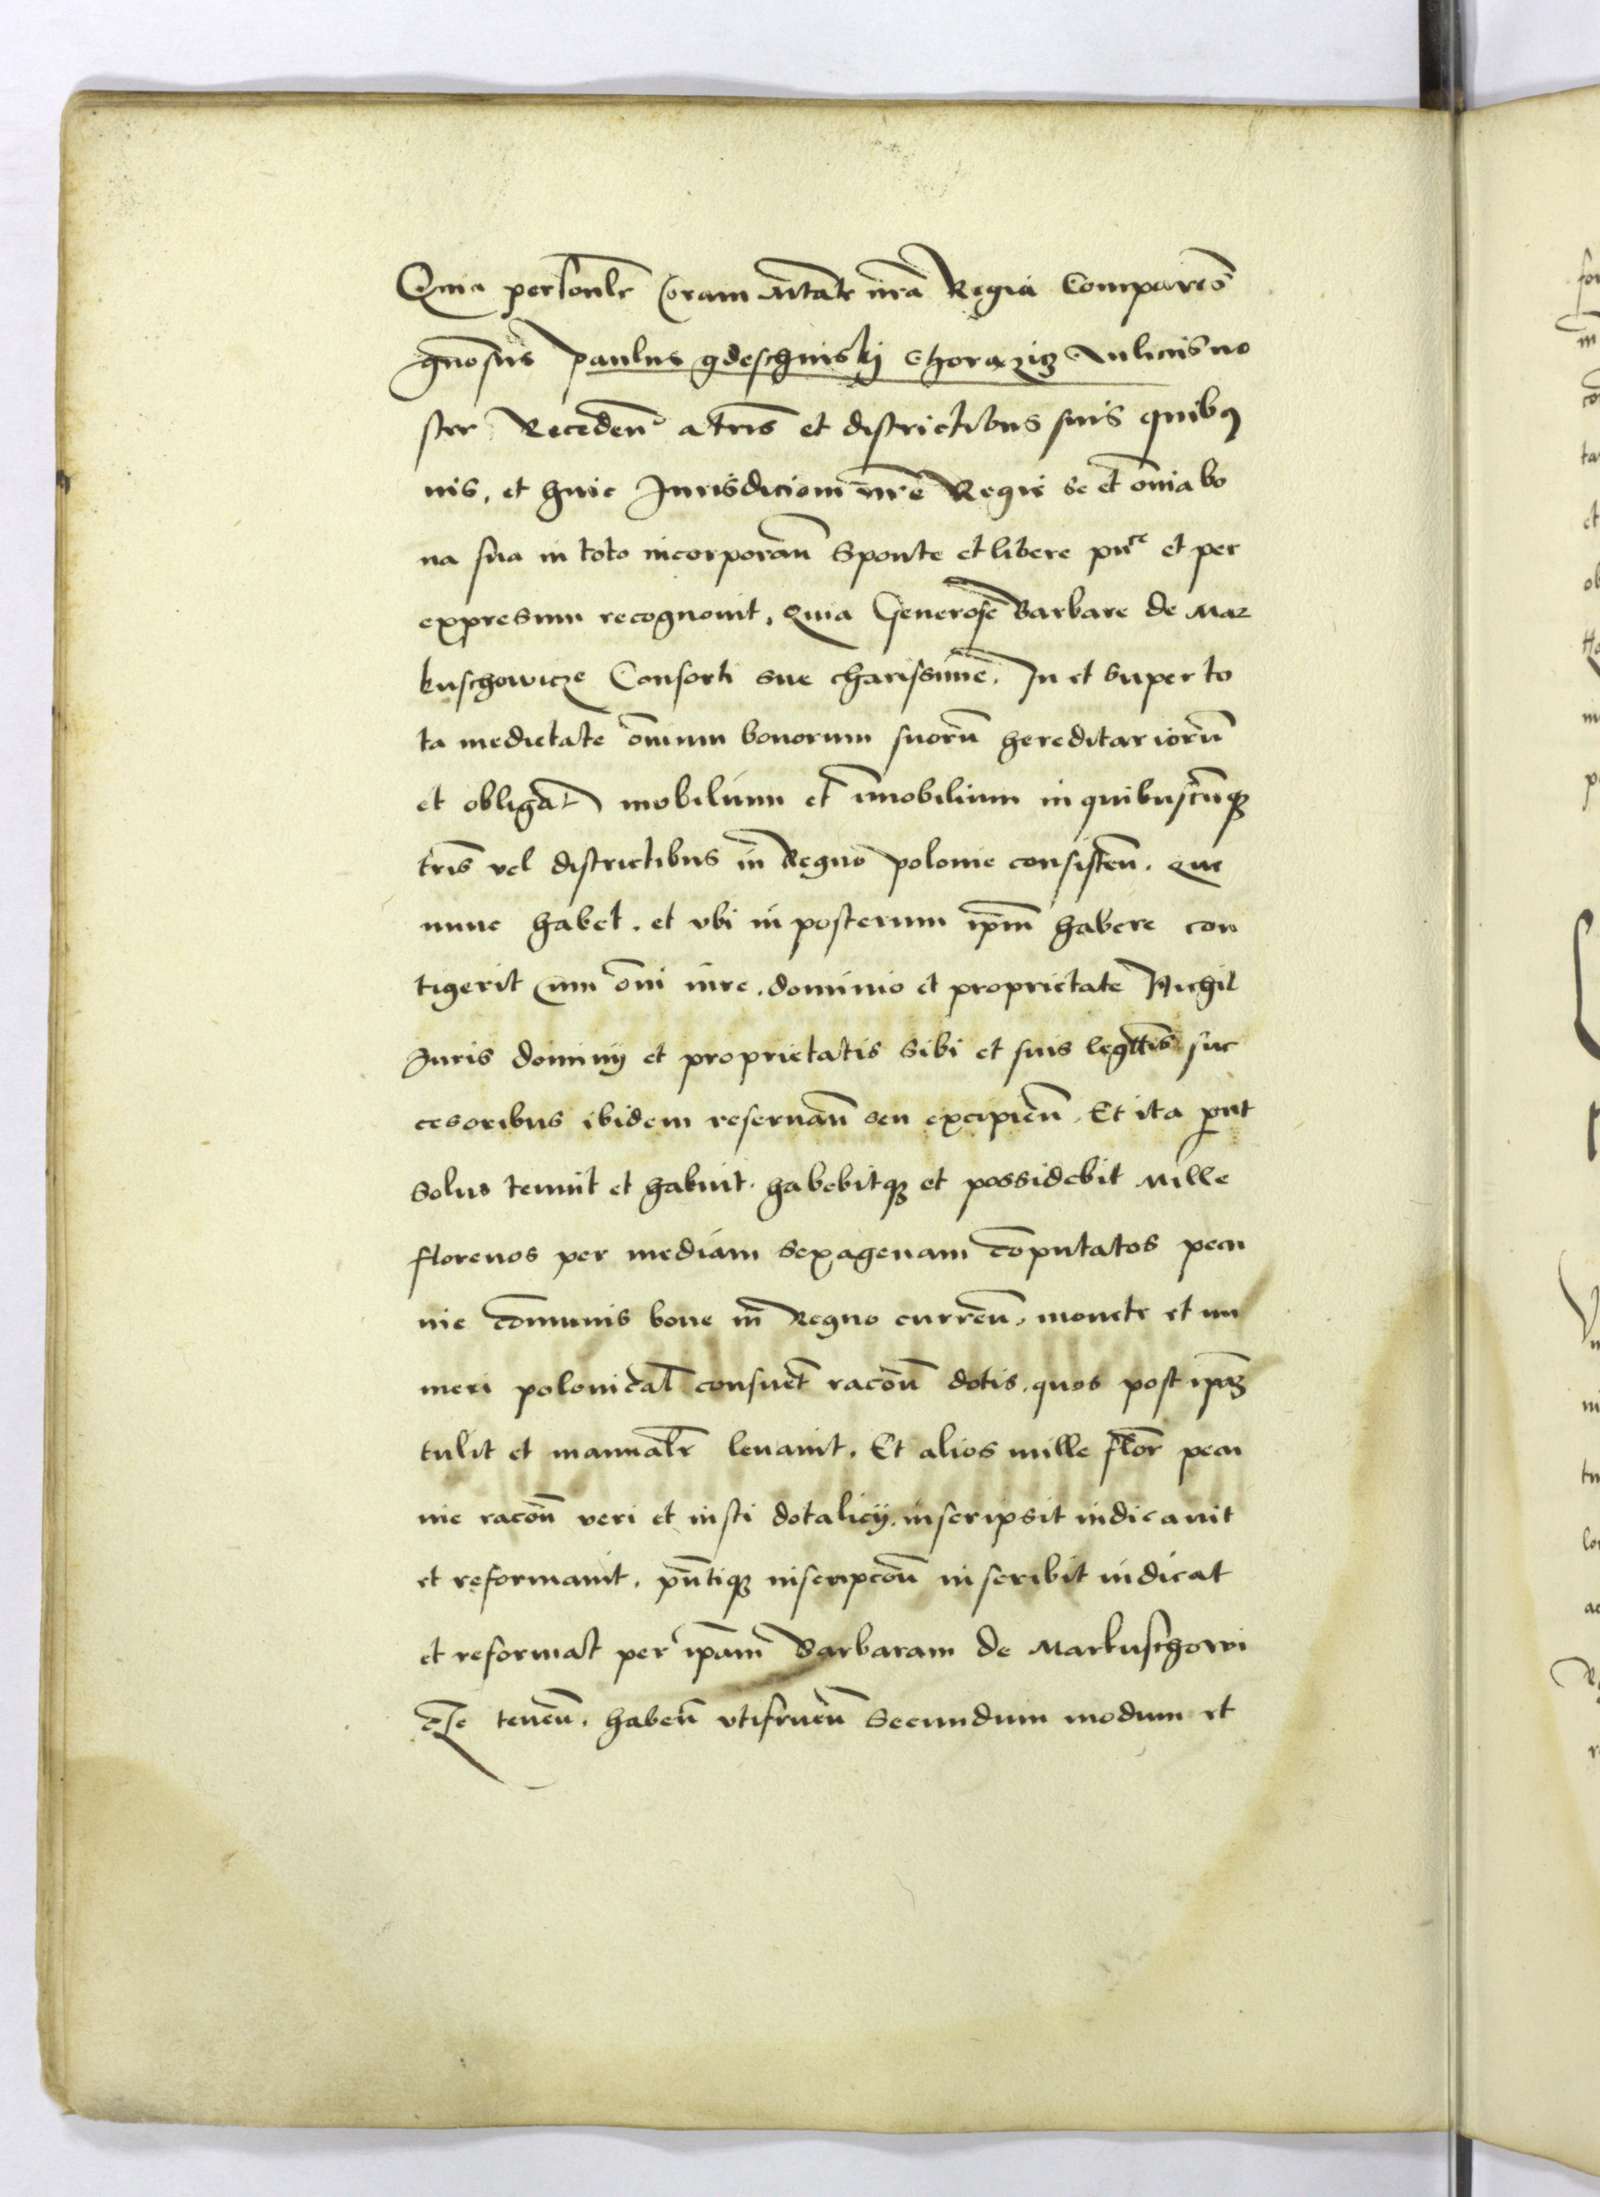 Quia personlr Coram Mtate nra Regia Comparens
gnosus Paulus gdeschinskj Chorazig Aulicus no
ster Recedens a tris et districtibus suis quibus
uis, et huic Jurisdicioni nre Regie se et omia bo
na sua in toto incorporans Sponte et libere pure et per
expresum recognouit, Quia Generose Barbare de Mar
kuschowicze Consorti sue charissime. In et super to
ta medietate omnium bonorum suorum hereditariorum
et obligat mobilium et immobilium in quibuscunque
tris vel districtibus in Regno polonie consisten. Que
nunc habet. et vbi in posterum ipm habere con
tigerit Cum omi iure. dominio et proprietate Nichil
Iuris dominij et proprietatis sibi et suis legttis suc
cesoribus ibidem reseruan seu excipien. Et ita prout
solus tenuit et habuit. habebitque et possidebit Mille
florenos per mediam sexagenam computatos pecu
nie comunis bone in Regno curren. monete et nu
meri polonical consuet racoen dotis. quos post ipam
tulit et manualr leuauit. Et alios mille flor pecu
nie racoen veri et iusti dotalicij. inscripsit indicauit
et reformauit. pntique inscripcoen inscribit indicat
et reformat per ipam Barbaram de Markuschowi
cze tenen. haben vtifruen Secundum modum et